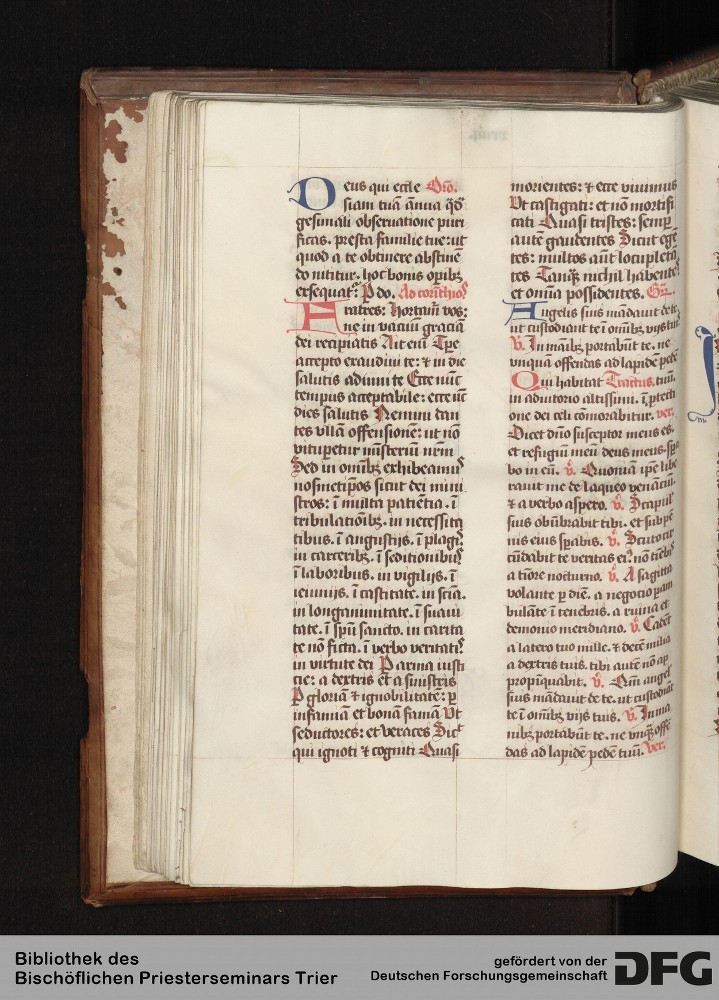 Deus qui eccle Oro.
siam tuā ānua qͣd
gesimali obseruatione puri
ficas. presta familie tue: ut
quod a te obtinere abstinē
do nititur. hoc bonis opibꝫ
exsequat᷑. P do. Ad corinthios
Fratres: Hortam᷑ vos:
ne in vacuū graciā
dei recipiatis Ait eni Tpe
accepto exaudiui te: ⁊ in die
salutis adiuui te Ecce nūc
tempus acceptabile: ecce nūc
dies salutis Nemini dan
tes vllā offensionē: ut nō
vitupetur ministeriū nrm
Sed in omībꝫ exhibeamus
nosmetipos sicut dei mini
stros: ī multa patiētia. ī
tribulatiōibꝫ. in necessita
tibus. ī angustijs. ī plagis
in carceribꝫ. ī seditionibus
ī laboribus. in vigilijs. ī
ieiunijs. ī castitate. in sciā.
in longanimitate. ī suaui
tate. ī spū sancto. in carita
te nō ficta. ī verbo veritatis
in virtute dei P arma iusti
cie: a dextris et a sinistris
P gloriā ⁊ ignobilitatē: p
infamiā et bonā famā Vt
seductores: et veraces Sict
qui ignoti ⁊ cogniti Quasi
morientes: ⁊ ecce viuimus
Vt castigati: et nō mortifi
cati Quasi tristes: semp
autē gaudentes Sicut egē
tes: multos aūt locupletā
tes Tanqꝫ nichil habentes
et omīa possidentes. Gr.
Angelis suis mādauit de te
ut custodiant te ī omībꝫ vijs tuis
V. In manibꝫ portabūt te. ne
vnquā offendas ad lapidē pedē
Qui habitat Tractus. tuū.
in adiutorio altissimi. ī ptecti
one dei celi cōmorabitur. ver.
Dicet dno susceptor meus es.
et refugiū meū deus meus. spa
bo in eū. v. Quoniā ipe libe
rauit me de laqueo venāciū.
⁊ a verbo aspero. v. Scapul
suis obūbrabit tibi. et sub pē
nis eius spabis. v. Scuto cir
cūdabit te veritas eiꝰ. nō timebis
a tiore nocturno. v. A sagitta
volante p diē. a negocio pam
bulāte ī tenebris. a ruina et
demonio meridiano. v. Cadēt
a latere tuo mille. ⁊ decē milia
a dextris tuis. tibi autē nō ap
propinquabit. v. Qm̄ angel
suis mādauit de te. ut custodiāt
te ī omībꝫ vijs tuis. v. In ma
nibꝫ portabūt te. ne vnqꝫ offē
das ad lapidē pedē tuū. ver.
Bibliothek des
Bischöflichen Priesterseminars Trier
gefördert von der
Deutschen Forschungsgemeinschaft
DFG